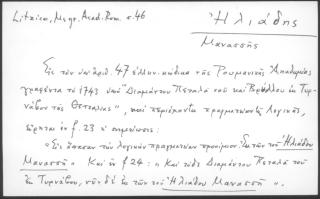 Litzica, Ms. gr. Acad. Rom. σ. 46
Ἠλιάδης
Μανασσῆς
Εἰς τὸν ὑπ' ἀριθ. 47 ἑλλην. κώδικα τῆς Ρουμανικῆς Ἀκαδημίας
γραφέντα τῷ 1743 "ὑπὸ Διαμάντου Πεταλᾶ τοῦ καὶ ἐν Τυρ-
νάβου τῆς Θεσσαλίας", καὶ περιέχοντα πραγματείας Λογικῆς,
εὕρηται ἐν f. 23 ἡ σημείωσις:
"Εἰς ἅπασαν τῶν λογικῶν πραγματείαν προοίμιον: Ἐκ τῶν τοῦ Ἠλιάδου
Μανασσῆ" Καὶ ἐν f 24: "Καὶ τόδε Διαμάντου Πεταλᾶ τοῦ
ἐκ Τυρνάβου, νῦν δὲ ἐκ τῶν τοῦ Ἠλιάδου Μανασσῆ".